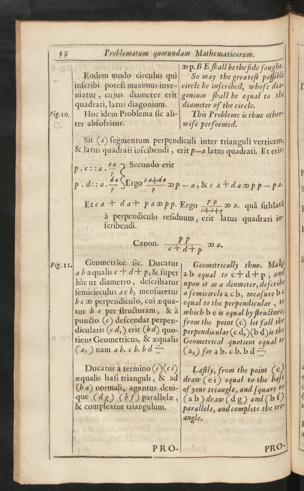 Problematum quorundam Mathematicorum.
Eodem modo circulus qui
inscribi potest maximus inve-
niatur, cujus diameter erit
quadrati, latus diagonium.
Fig. 10. Hoc idem Problema sic ali-
ter absolvitur.
∞ p. B E shall be the side sought.
So may the greatest possible
circle be inscribed, whose dia-
gonium shall be equal to the
diameter of the circle.
This Probleme is thus other-
wise performed.
Sit (a) segmentum perpendiculi inter trianguli verticem,
& latus quadrati inscribendi, erit p—a latus quadrati. Et erit
Secundo erit
Ergo ∞ p — a, & c a + d a ∞ p p — p a.
Et c a + d a + p a ∞ p p. Ergo ∞ a. quâ sublatâ
à perpendiculo residuum, erit latus quadrati in-
scribendi.
Canon. p p / c + d + p ∞ a.
Fig. 11. Geometricè sic. Ducatur
a b æqualis c + d + p, & super
hâc ut diametro, describatur
semicirculus a e b, mensuretur
b e ∞ perpendiculo, cui æqua-
tur b e per structuram, & à
puncto (e) descendat perpen-
dicularis (e d,) erit (b d) quo-
tiens Geometricus, & æqualis
(a,) nam a b. e b. b d
Geometrically thus. Make
a b equal to c + d + p, and
upon it as a diameter, describe
a semicircle a e b, measure b e
equal to the perpendicular, to
which b e is equal by structure,
from the point (e) let fall the
perpendicular (e d,) (b d) is the
Geometrical quotient equal to
(a,) for a b. e b. b d
Ducatur à termino (e) (e i)
æqualis basi trianguli, & ad
(b a) normali, agantur deni-
que (d g) (b f) parallelæ,
& compleatur triangulum.
Lastly, from the point (e)
draw (e i) equal to the base
of your triangle, and square to
(a b) draw (d g) and (b f)
parallels, and complete the tri-
angle.
PRO- PRO-